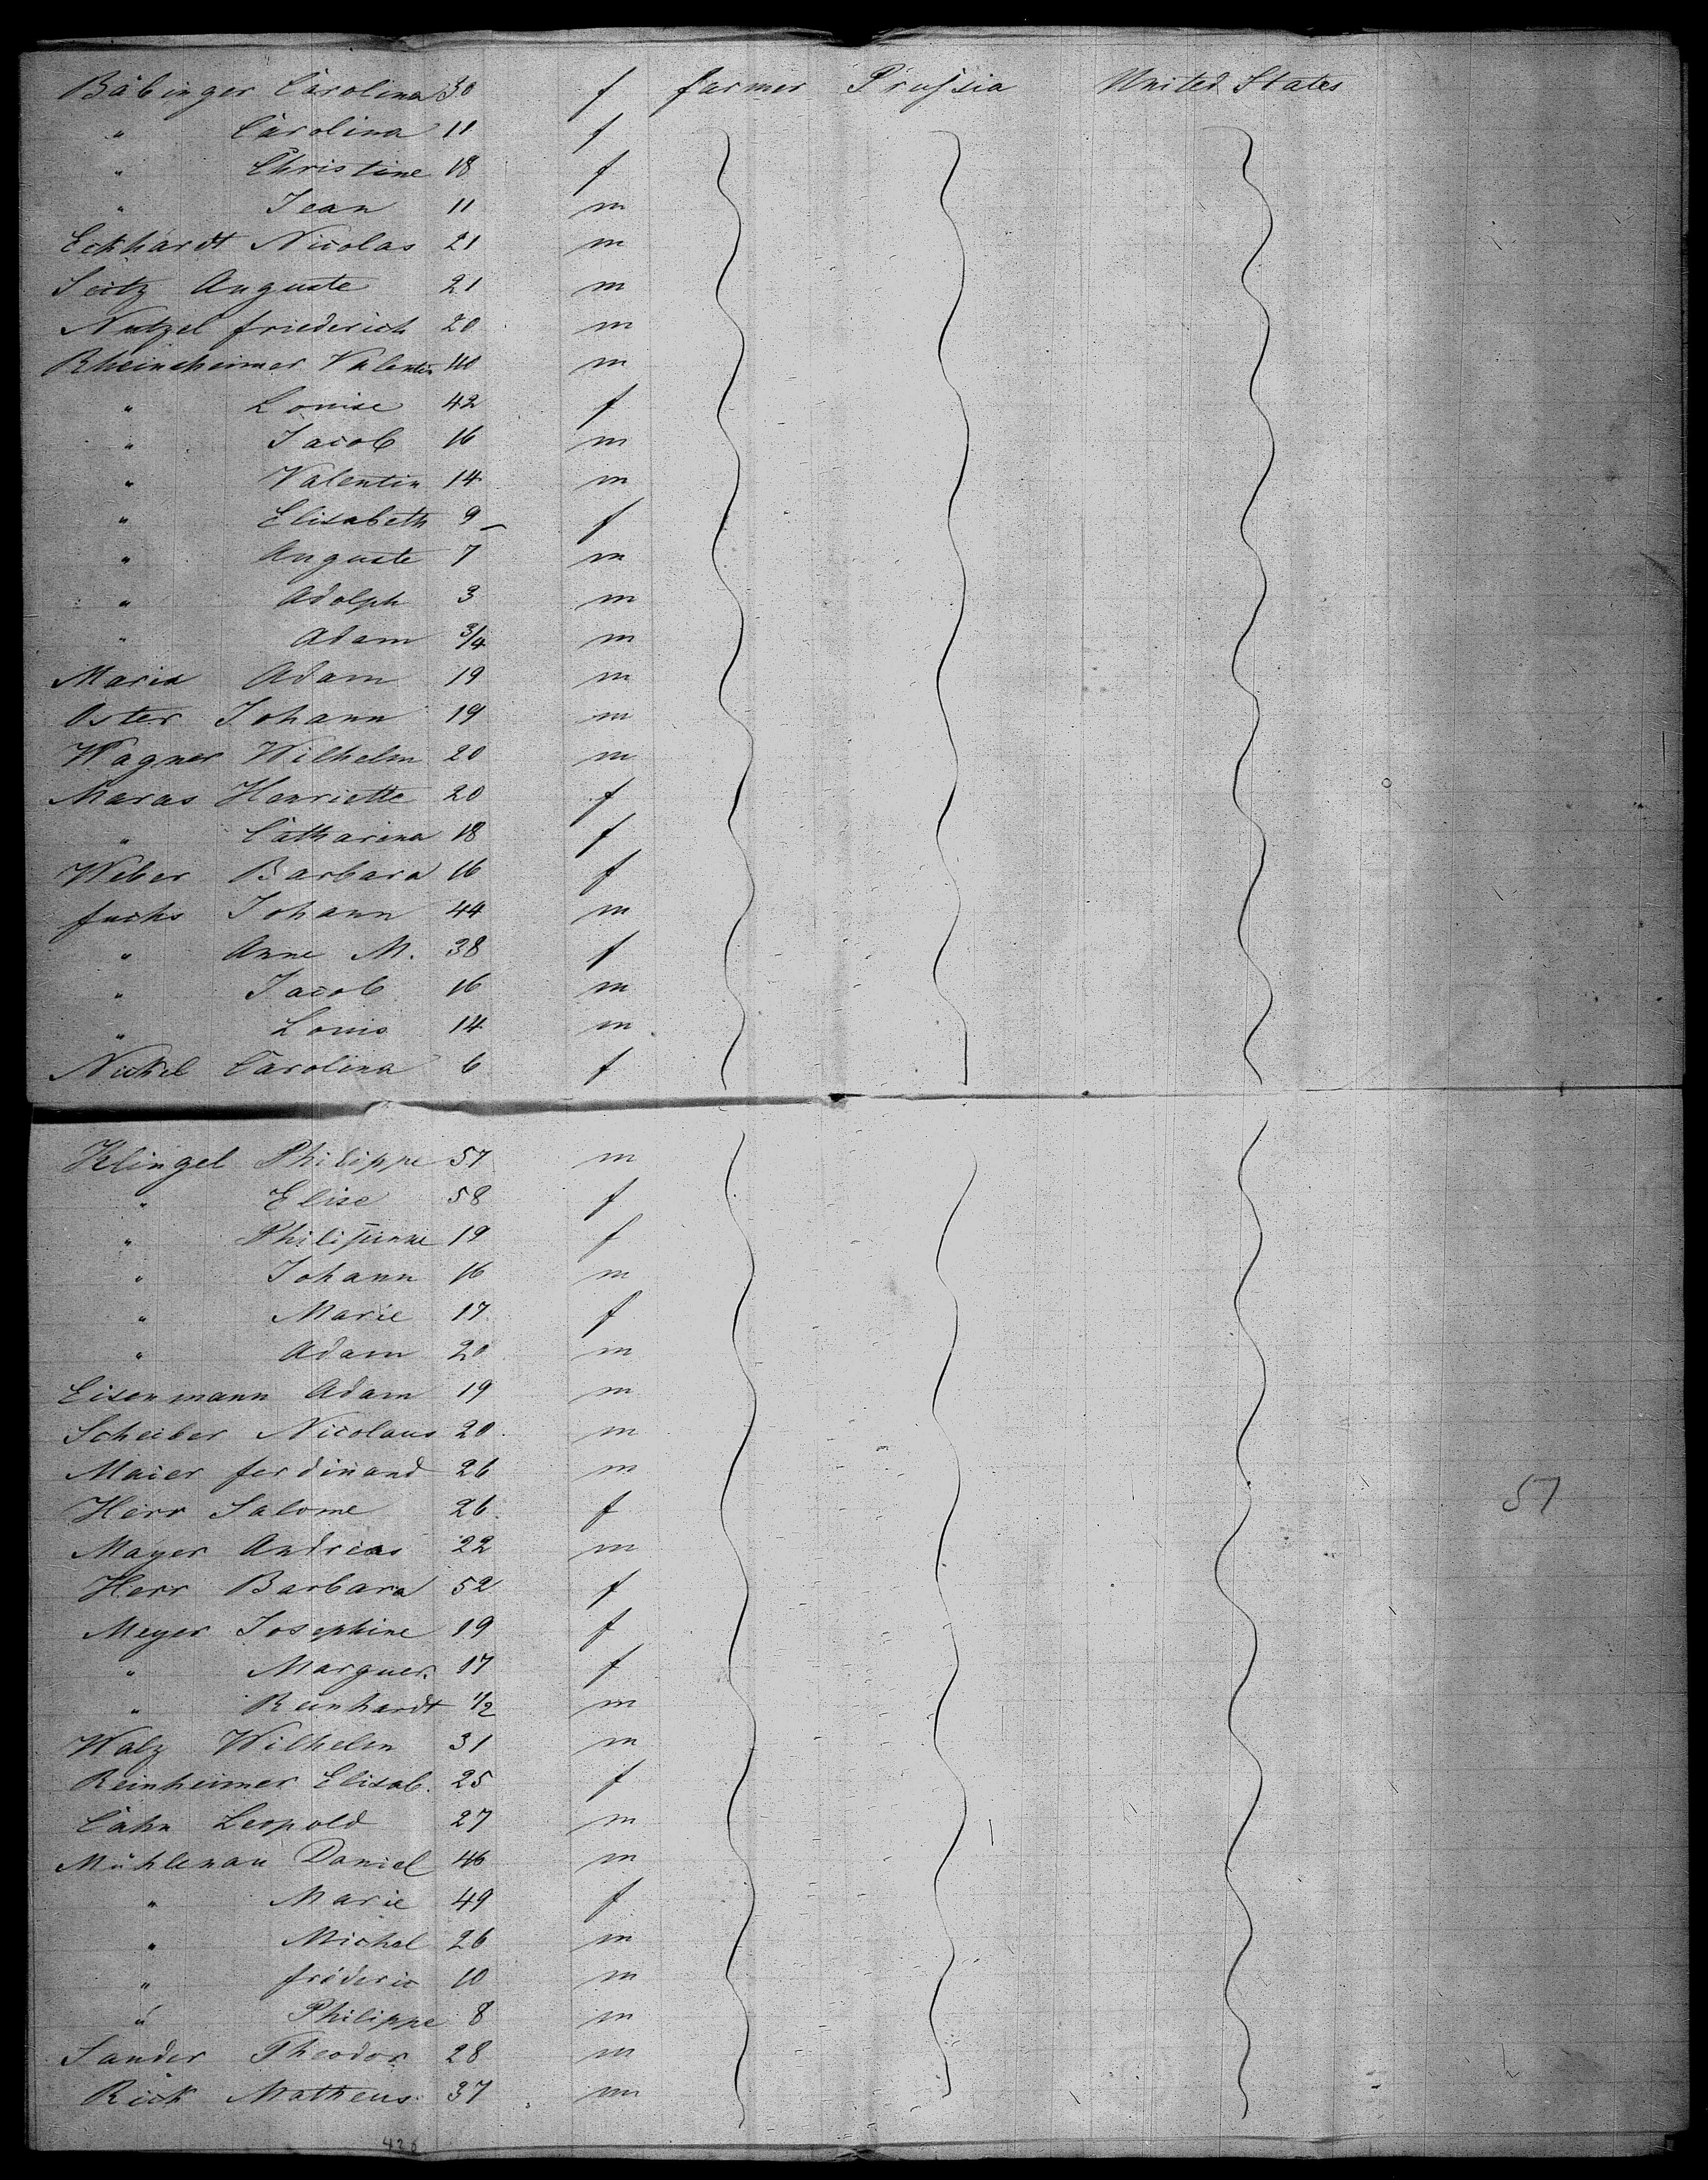 Bäbinger Carolina 30 f farmer Prussia United States
" Carolina 11 f
" Christine 18 f
" Jean 11 m
Eckhardt Nicolas 21 m
Seitz Auguste 21 m
Nutzel friederich 20 m
Rheinsheimer Valentin m
" Louise 42 f
" Jacob 16 m
" Valentin 14 m
" Elisabeth 9 f
" Auguste 7 m
" Adolph 3 m
" Adam 3/4 m
Maria Adam 19 m
Oster Johann 19 m
Wagner Wilhelm 20 m
Maras Henriette 20 f
" Catharina 18 f
Weber Barbara 16 f
fuchs Johann 44 m
" Anne M. 38 f
" Jacob 16 m
" Louis 14 m
Nickel Carolina 6 f
Klingel Philippe 57 m
" Elise 58 f
" Philippinne 19 f
" Johann 16 m
" Marie 17 f
" Adam 20 m
Eisenmann Adam 19 m
Scheiber Nicolaus 20 m
Maier ferdinand 26 m
Herr Salome 26 f
57
Mayer Andreas 22 m
Herr Barbara 52 f
Meyer Josephine 19 f
" Marguer. 17 f
" Reinhardt 1/2 m
Walz Wilhelm 31 m
Reinheimer Elisab. 25 f
Cahn Leopold 27 m
Mühlenau Daniel 46 m
" Marie 49 f
" Michel 26 m
" fréderic 10 m
" Philippe 8 m
Sander Theodor 28 m
Rick Matheus 37 m
426